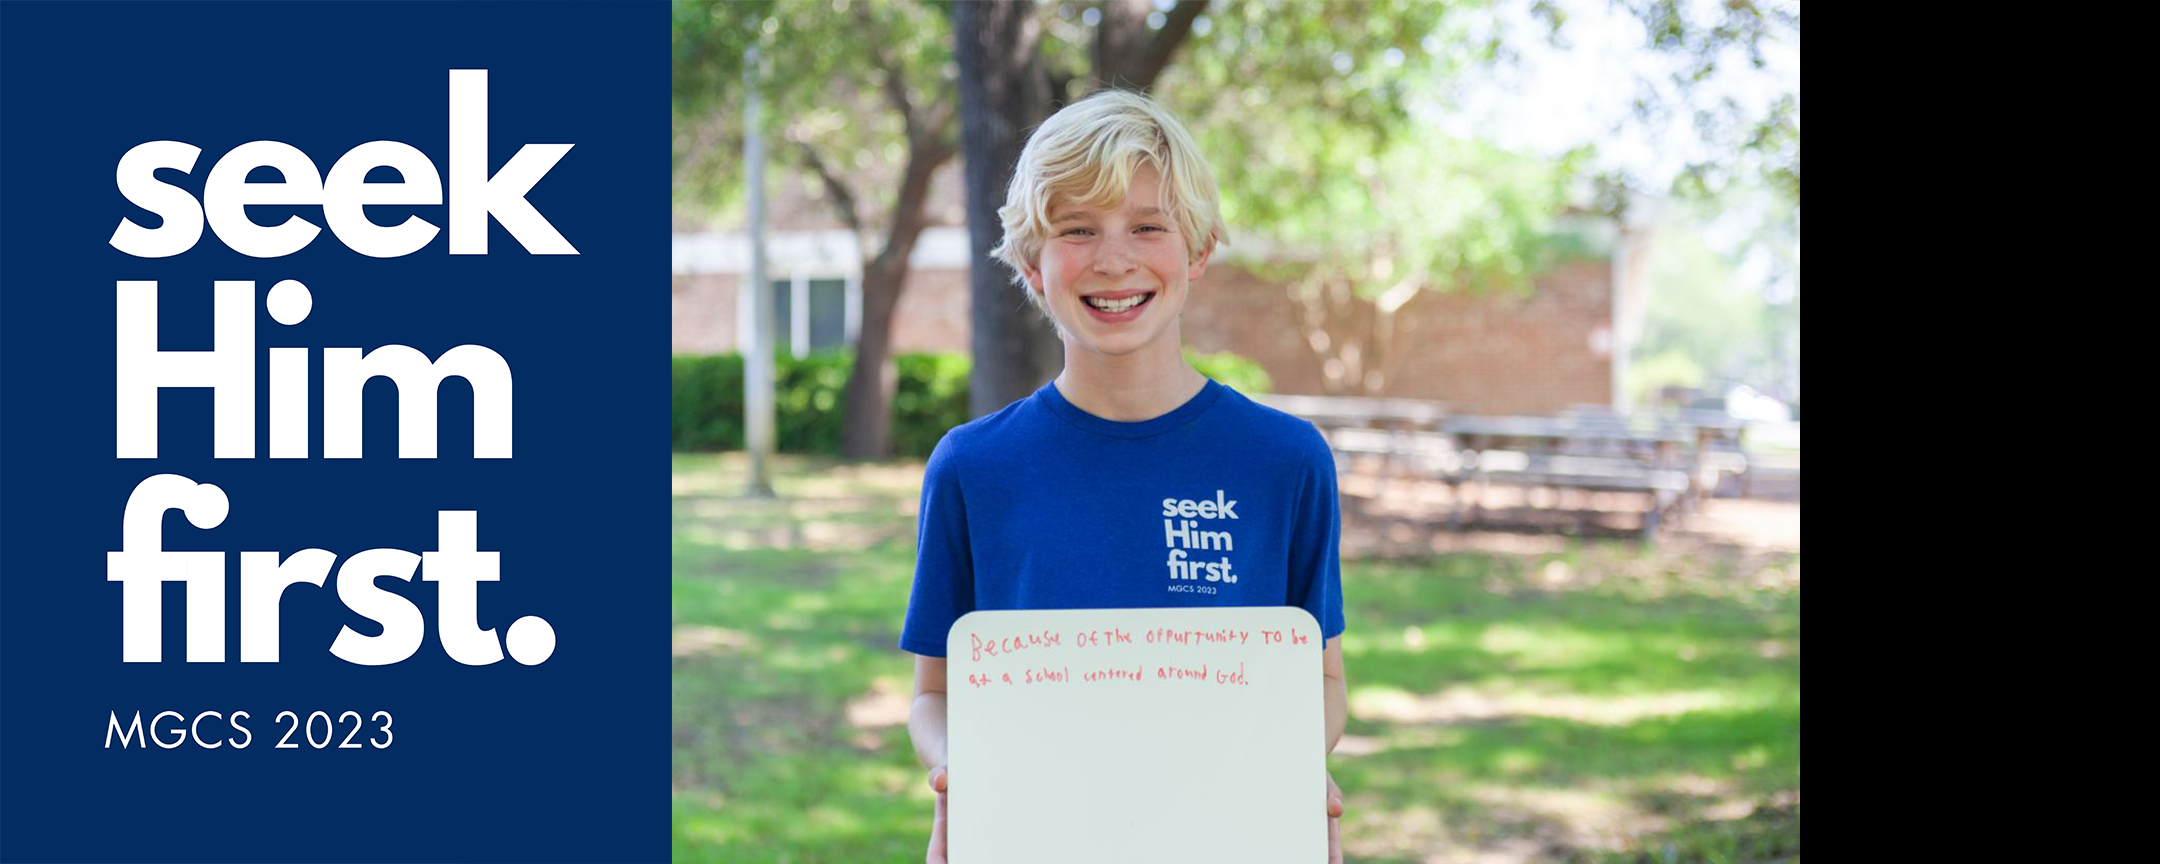 seek
Him
first.
MGCS 2023
seek
Him
first.
MGCS 2023
Because of the oppurtunity to be
at a school centered around God.